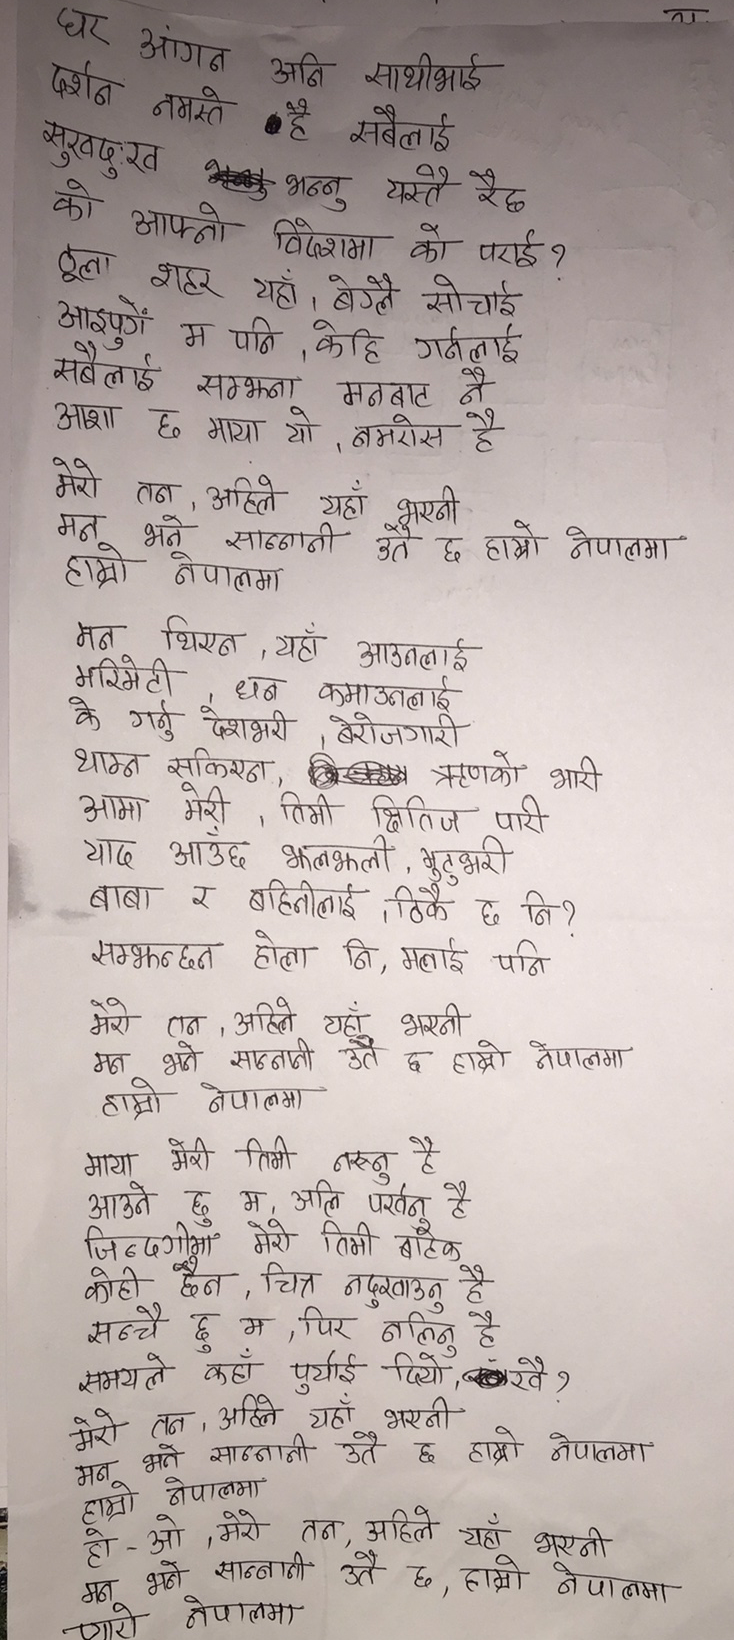 घर आंगन अनि साथीभाई
दर्शन नमस्ते है सबैलाई
सुखदुःख भन्नु यस्तै रैछ
को आफ्नो विदेशमा को पराई?
ठूला शहर यहाँ, बेग्लै सोचाई
आइपुगें म पनि, केहि गर्नलाई
सबैलाई सम्झना मनबाट नै
आशा छ माया यो, नमरोस है
मेरो तन, अहिले यहाँ भएनी
मन भने सान्नानी उतै छ हाम्रो नेपालमा
हाम्रो नेपालमा
मन थिएन, यहाँ आउनलाई
मरिमेटी, धन कमाउनलाई
के गर्नु देशभरी, बेरोजगारी
थाम्न सकिएन, ऋणको भारी
आमा मेरी, तिमी क्षितिज पारी
याद आउँछ झलझली, मुटुभरी
बाबा र बहिनीलाई, ठिकै छ नि?
सम्झन्छन होला नि, मलाई पनि
मेरो तन, अहिले यहाँ भएनी
मन भने सान्नानी उतै छ हाम्रो नेपालमा
हाम्रो नेपालमा
माया मेरी तिमी नरुनु है
आउने छु म, अलि पर्खनु है
जिन्दगीमा मेरो तिमी बाहेक
कोही छैन, चित्त नदुखाउनु है
सन्चै छु म, पिर नलिनु है
समयले कहाँ पुर्याई दियो, खै?
मेरो तन, अहिले यहाँ भएनी
मन भने सान्नानी उतै छ हाम्रो नेपालमा
हाम्रो नेपालमा
हो - ओ, मेरो तन, अहिले यहाँ भएनी
मन भने सान्नानी उतै छ, हाम्रो नेपालमा
प्यारो नेपालमा